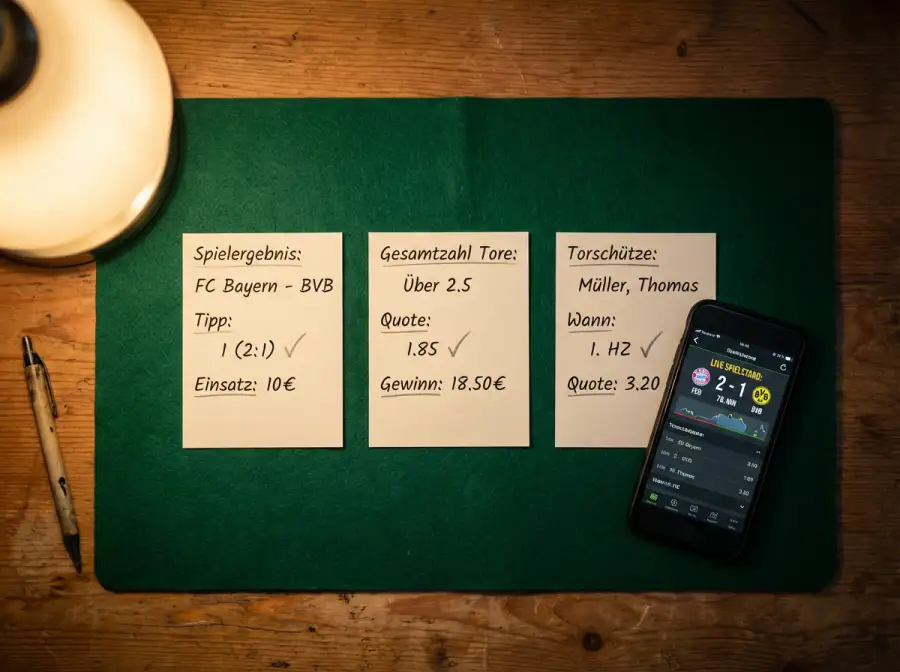 Spielergebnis:
FC Bayern - BVB
Tipp:
1 (2:1) ✓
Einsatz: 10€
Gesamtzahl Tore:
Über 2.5
Quote:
1.85 ✓
Gewinn: 18.50€
Torschütze:
Müller, Thomas
Wann:
1. HZ ✓
Quote: 3.20
LIVE SPIELSTAND:
2 - 1
FCB
78. MIN
BVB